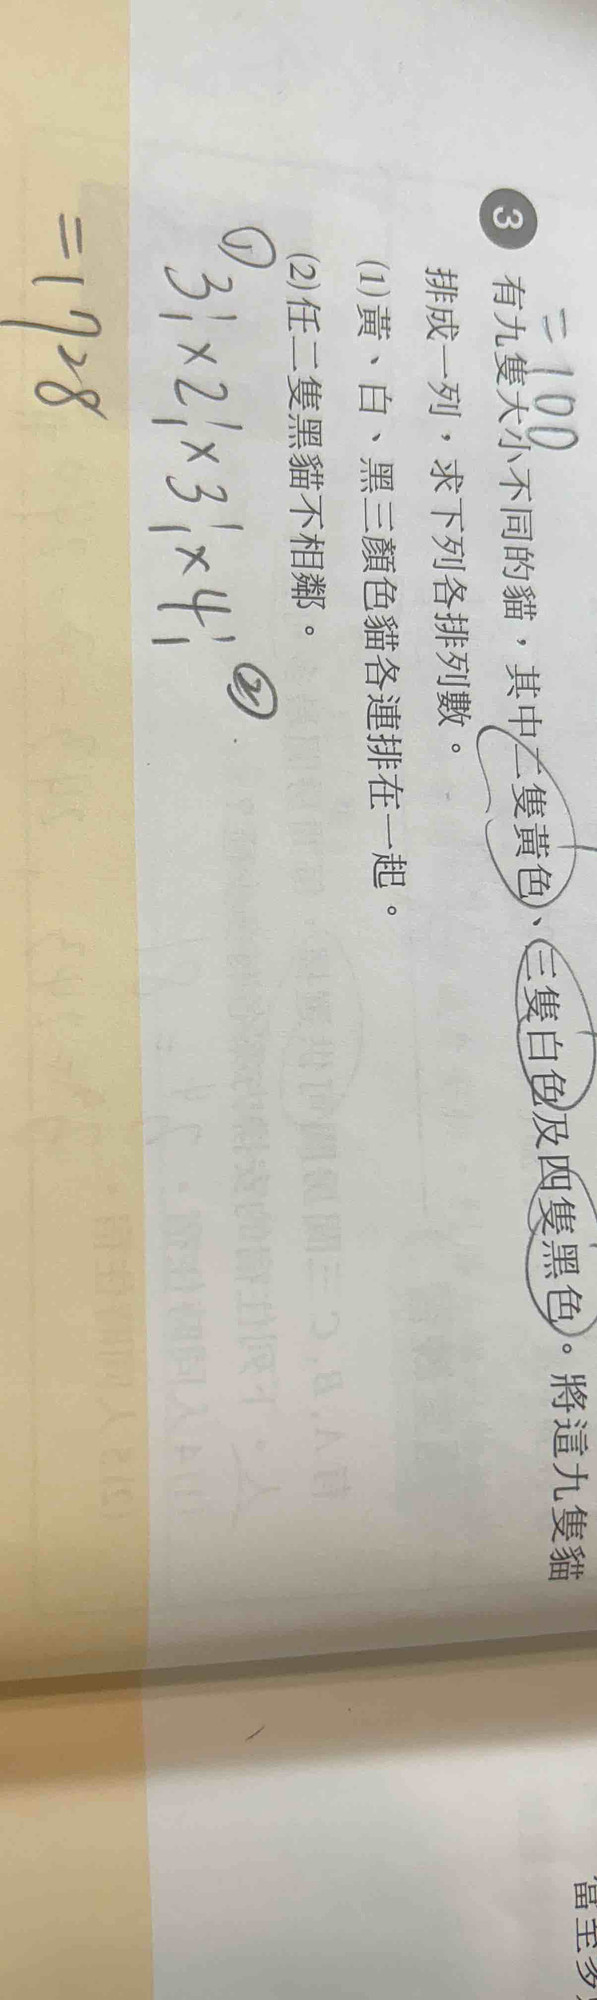 =100
3 有九隻大小不同的貓，其中二隻黃色、三隻白色及四隻黑色。將這九隻貓
排成一列，求下列各排列數。
(1)黃、白、黑三顏色貓各連排在一起。
(2)任二隻黑貓不相鄰。
① 3!×2!×3!×4! ②
=1728